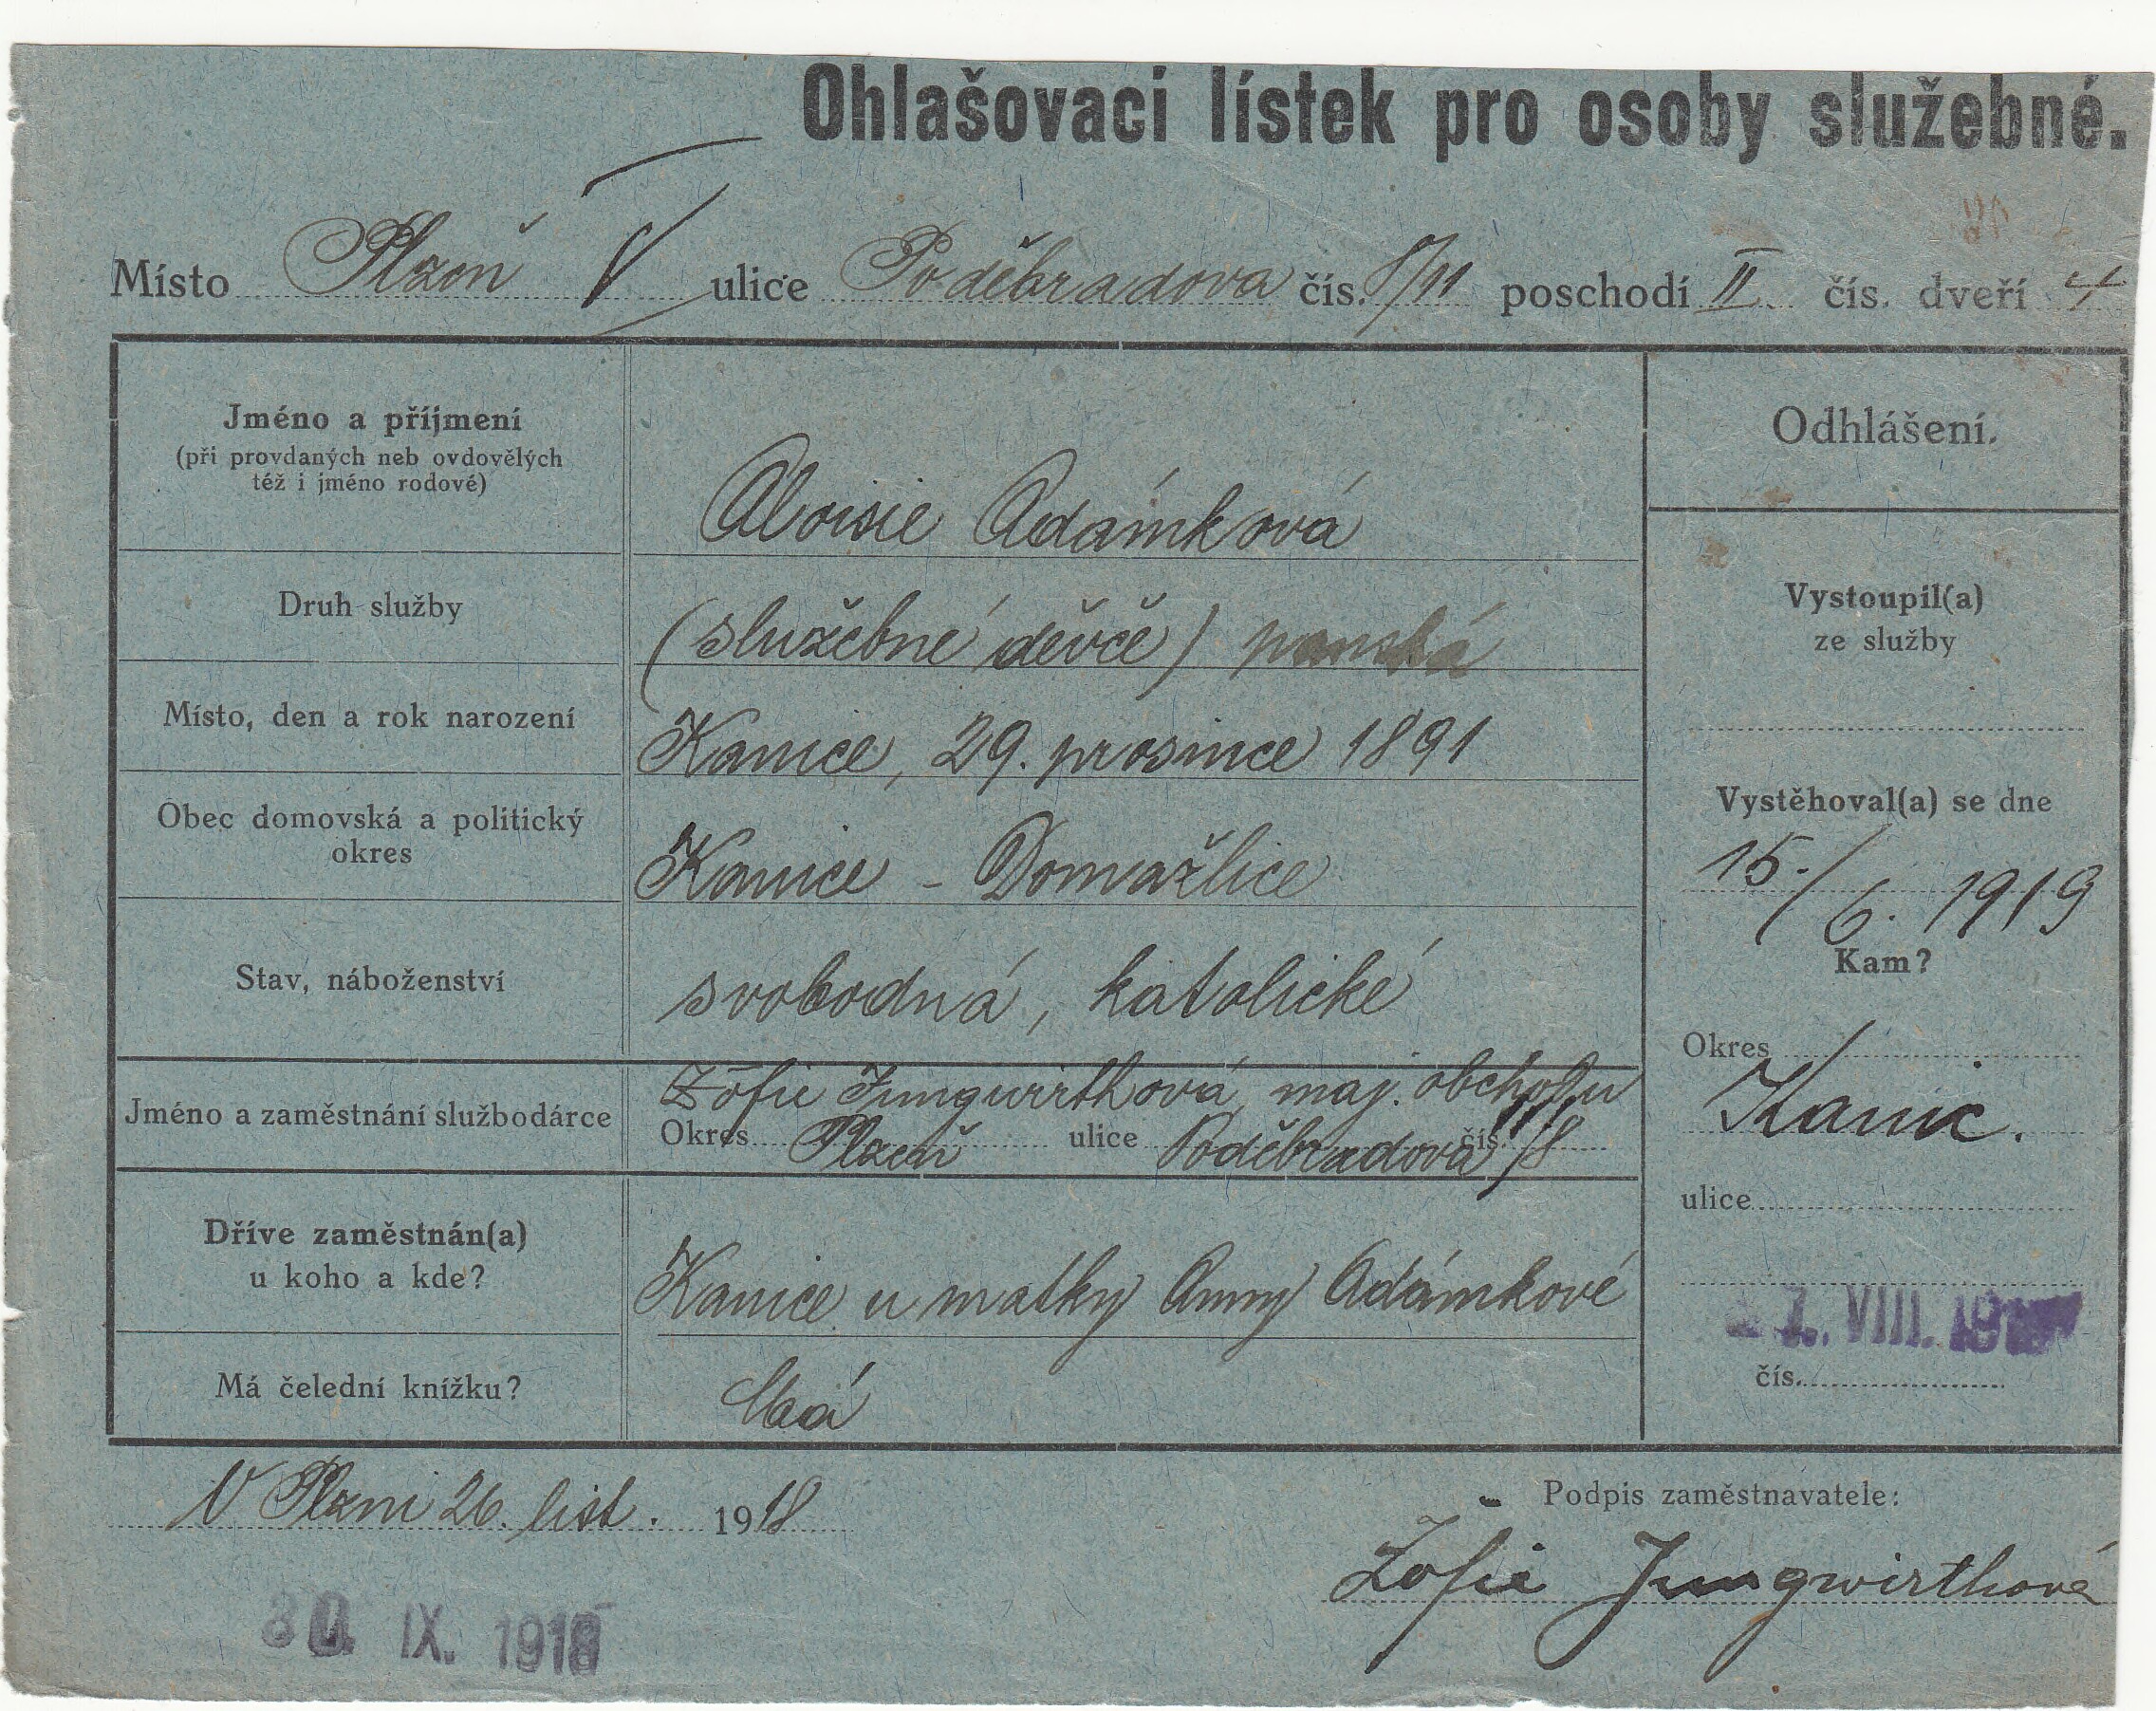 Ohlašovací lístek pro osoby služebné.
Místo Plzeň V ulice Poděbradova čís. 8/11 poschodí II čís. dveří 4
Jméno a příjmení
(při provdaných neb ovdovělých
též i jméno rodové)
Aloisie Adámková
Druh služby
(služebné děvče) panská
Místo, den a rok narození
Kanice, 29. prosince 1891
Obec domovská a politický
okres
Kanice - Domažlice
Stav, náboženství
svobodná, katolické
Jméno a zaměstnání službodárce
Žofie Jungwirthová, maj. obchodu
Okres Plzeň ulice Poděbradova čís. 11/8
Dříve zaměstnán(a)
u koho a kde?
Kanice u matky Anny Adámkové
Má čelední knížku?
Má
Odhlášení.
Vystoupil(a)
ze služby
Vystěhoval(a) se dne
15./6. 1919
Kam?
Okres
Kanic.
ulice
VIII. 19
čís.
V Plzni 26. list. 1918
Podpis zaměstnavatele:
Žofie Jungwirthová
30. IX. 1918